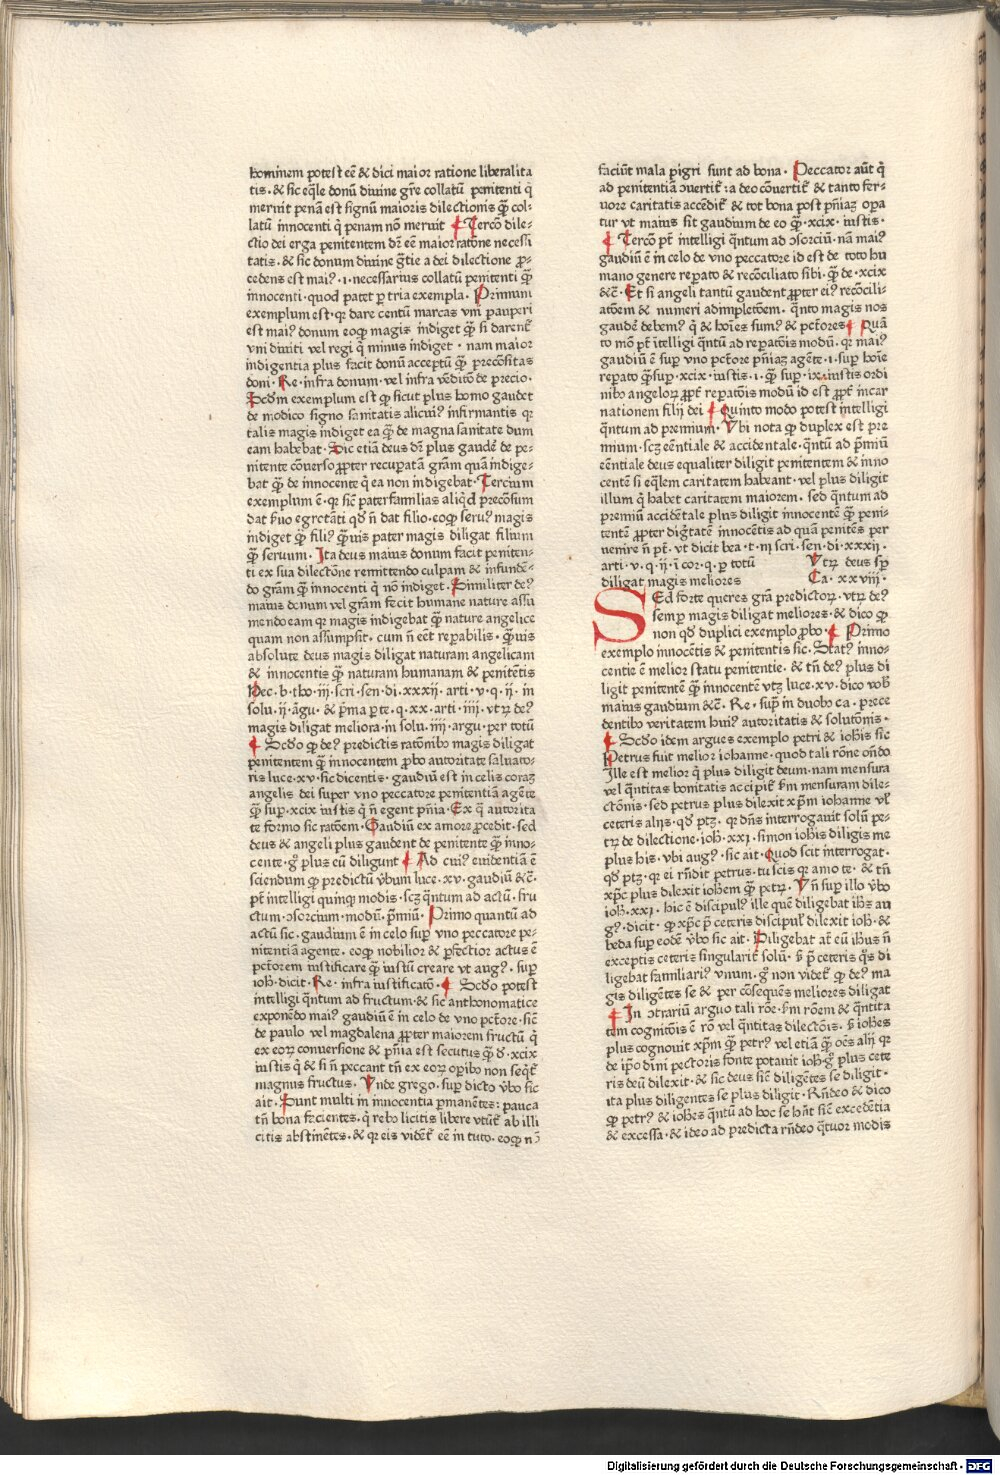 hominem potest eē & dici maior ratione liberalita
tis. & sic eq̄le donū diuine gr̄e collatū penitenti q̄
meruit penā est signū maioris dilectionis q̄ꝫ col-
latū innocenti q̄ penam nō meruit ¶ Tercō dile-
ctio dei erga penitentem dr̄ eē maior ratōne necessi
tatis. & sic donum diuine gr̄tie a dei dilectione p̄-
cedens est maiꝰ .i. necessarius collatū penitenti q̄ꝫ
innocenti. quod patet p tria exempla. Primum
exemplum est. qꝛ dare centū marcas vni pauperi
est maiꝰ donum eoqꝫ magis indiget q̄ꝫ si darent̄
vni diuiti vel regi q̄ minus indiget. nam maior
indigentia plus facit donū acceptū q̄ꝫ preciositas
doni. Re. infra donum. vel infra vēditō de precio.
Scd̄m exemplum est qꝫ sicut plus homo gaudet
de modico signo sanitatis alicuiꝰ infirmantis qꝛ
talis magis indiget ea q̄ꝫ de magna sanitate dum
eam habebat. Sic etiā deus dr̄ plus gaudē de pe-
nitente cōuerso ꝓpter recuperatā grām quā indige-
bat q̄ꝫ de innocente q̄ ea non indigebat. Tercium
exemplum ē. qꝛ sic̄ paterfamilias aliqd̄ preciosum
dat s̄uo egrotāti qd̄ n̄ dat filio. eoqꝫ seruꝰ magis
indiget q̄ꝫ filiꝰ q̄ꝫuis pater magis diligat filium
q̄ꝫ seruum. Ita deus maius donum facit peniten-
ti ex sua dilectōne remittendo culpam & infunden-
do grām q̄ꝫ innocenti q̄ nō indiget. Similiter deꝰ
maius donum vel grām fecit humane nature assu
mendo eam qꝛ magis indigebat q̄ꝫ nature angelice
quam non assumpsit. cum n̄ eēt repabilis. q̄ꝫuis
absolute deus magis diligat naturam angelicam
& innocentis q̄ꝫ naturam humanam & penitētis
Hec. b. tho. iij. scri. sen. di. xxxij. arti. v. q. ij. in
solu. ij. āgu. & p̄ma pte. q. xx. arti. iiij. vtꝝ deꝰ
magis diligat meliora. in solu. iiij. argu. per totū
¶ Scd̄o qꝫ deꝰ predictis ratōnibꝰ magis diligat
penitentem q̄ꝫ innocentem ꝓbo autoritate saluato-
ris luce. xv. sic dicentis. gaudiū est in celis coraꝫ
angelis dei super vno peccatore penitentiā agēte
q̄ꝫ suꝑ. xcix iustis q̄ n̄ egent pn̄ia. Ex q̄ autorita
te formo sic ratōem. Gaudiū ex amore ꝓcedit. sed
deus & angeli plus gaudent de penitente q̄ꝫ inno-
cente. gͦ plus eū diligunt ¶ Ad cuiꝰ euidentiā ē
sciendum qꝫ predictū v̄bum luce. xv. gaudiū &c̄.
pt̄ intelligi quinqꝫ modis. scꝫ q̄ntum ad actū. fru
ctum. ↄsorcium. modū. p̄miū. Primo quantū ad
actū sic. gaudium ē in celo suꝑ vno peccatore pe-
nitentiā agente. eoqꝫ nobilior & ꝑfectior actus ē
pctōrem iustificare q̄ꝫ iustū creare vt augꝰ. suꝑ
ioh̄. dicit. Re. infra iustificatō. ¶ Scd̄o potest
intelligi q̄ntum ad fructum. & sic anthonomatice
exponēdo maiꝰ gaudiū ē in celo de vno pctōre. sic̄
de paulo vel magdalena ꝓpter maiorem fructū q̄
ex eoꝝ conuersione & pn̄ia est secutus q̄ꝫ d̄. xcix
iustis q̄ & si n̄ peccant tn̄ ex eoꝝ oꝑibꝰ non seqt̄
magnus fructus. Unde grego. suꝑ dictō v̄bo sic
ait. Sunt multi in innocentia ꝑmanētes: pauca
tn̄ bona facientes. q̄ rebꝰ licitis libere vtūt̄ ab illi
citis abstinētes. & qꝛ eis videt̄ eē in tuto. eoqꝫ nō
faciūt mala pigri sunt ad bona. Peccator aūt q̄
ad penitentiā ↄuertit̄: a deo cōuertit̄ & tanto fer-
uore caritatis accēdit̄ & tot bona post pn̄iaꝫ opa
tur vt maius sit gaudium de eo q̄ꝫ. xcix. iustis.
¶ Tercō pt̄ intelligi q̄ntum ad ↄsorciū. nā maiꝰ
gaudiū ē in celo de vno peccatore id est de toto hu
mano genere repato & recōciliato sibi. q̄ꝫ de. xcix
&c̄. Et si angeli tantū gaudent ꝓpter eiꝰ recōcili-
atōem & numeri adimpletōem. q̄nto magis nos
gaudē debemꝰ q̄ & hoīes sumꝰ & pctōres ¶ Quar
to mō pt̄ ītelligi q̄ntū ad repatōis modū. qꝛ maiꝰ
gaudiū ē suꝑ vno pctōre pn̄iaꝫ agēte. i. suꝑ hoīe
repato q̄ꝫ suꝑ. xcix. iustis. i. q̄ꝫ suꝑ. ix. iustis ordi
nibꝰ angeloꝝ ꝓpt̄ repatōis modū id est ꝓpt̄ incar
nationem filij dei ¶ Quinto modo potest intelligi
q̄ntum ad premium. Ubi nota qꝫ duplex est pre
mium. scꝫ eēntiale & accidentale. q̄ntū ad p̄miū
eēntiale deus equaliter diligit penitentem & inno
centē si eq̄lem caritatem habeant. vel plus diligit
illum q̄ habet caritatem maiorem. sed q̄ntum ad
premiū accidētale plus diligit innocentē q̄ꝫ peni-
tentē ꝓpter diḡtatē innocētis ad quā penitēs per
uenire n̄ pt̄. vt dicit bea. t. iij scri. sen. di. xxxij.
arti. v. q. ij. i cor. q. p totū Utꝝ deus sꝑ
diligat magis meliores Ca. xxviij.
SEd forte queres grā predictoꝝ. vtꝝ deꝰ
semꝑ magis diligat meliores. & dico qꝫ
non qd̄ duplici exemplo ꝓbo. ¶ Primo
exemplo innocētis & penitentis sic. Statꝰ inno-
centie ē melior statu penitentie. & tn̄ deꝰ plus di
ligit penitentē q̄ꝫ innocentē vtꝫ luce. xv. dico vob̄
maius gaudium &c̄. Re. sup̄ in duobꝰ ca. prece
dentibꝰ veritatem huiꝰ autoritatis & solutōnis.
¶ Scd̄o idem argues exemplo petri & ioh̄is sic
Petrus fuit melior iohanne. quod tali rōne on̄do
Ille est melior q̄ plus diligit deum. nam mensura
vel q̄ntitas bonitatis accipit̄ s̄m mensuram dile-
ctōnis. sed petrus plus dilexit xp̄m iohanne vl̄
ceteris alijs. qd̄ ptꝫ. qꝛ dn̄s interrogauit solū pe-
tꝝ de dilectione. ioh̄. xxi. simon ioh̄is diligis me
plus his. vbi augꝰ. sic ait. Quod scit interrogat.
qd̄ ptꝫ. qꝛ ei rn̄dit petrus. tu scis qꝛ amo te. & tn̄
xp̄c plus dilexit ioh̄em q̄ꝫ petꝝ. Un̄ suꝑ illo v̄bo
ioh̄. xxi. hic ē discipulꝰ ille quē diligebat ih̄s au
gꝰ. dicit. qꝫ xp̄c p̄ ceteris discipul̄ dilexit ioh̄. &
beda suꝑ eodē v̄bo sic ait. Diligebat at̄ eū ih̄us n̄
exceptis ceteris singularit̄ solū. s̄ p̄ ceteris q̄s di
ligebat familiariꝰ vnum. gͦ non videt̄ qꝫ deꝰ ma
gis diligētes se & per cōsequēs meliores diligat
¶ In ↄtrariū arguo tali rōe. s̄m rōem & q̄ntita
tem cognitōis ē rō vel q̄ntitas dilectōis. s̄ ioh̄es
plus cognouit xp̄m q̄ꝫ petrꝰ vel etiā q̄ꝫ oēs alij qꝛ
de ip̄o dn̄i pectoris fonte potauit ioh̄. gͦ plus cete
ris deū dilexit. & sic deus sic̄ diligētes se diligit.
ita plus diligentes se plus diligit. Rn̄deo & dico
qꝫ petrꝰ & ioh̄es q̄ntū ad hoc se hn̄t sic̄ excedētia
& excessa. & ideo ad predicta rn̄deo q̄tuor modis
Digitalisierung gefördert durch die Deutsche Forschungsgemeinschaft - DFG